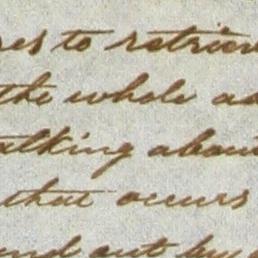 res to retriev
the whole a
alking about
that occurs
und out by